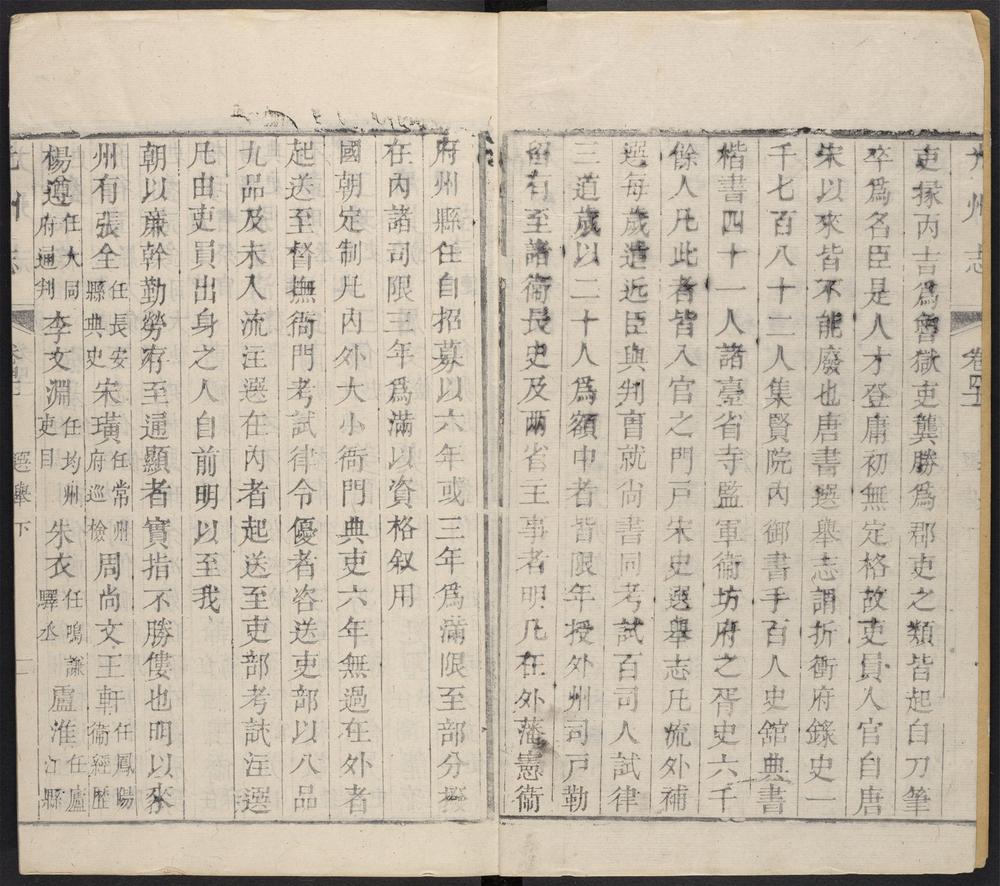 州志
卷
吏掾丙吉爲魯獄吏龔勝爲郡吏之類皆起自刀筆
卒爲名臣是人才登庸初無定格故吏員入官自唐
宋以來皆不能廢也唐書選舉志謂折衝府錄史一
千七百八十二人集賢院內御書手百人史館典書
楷書四十一人諸臺省寺監軍衞坊府之胥史六千
餘人凡此者皆入官之門戸宋史選舉志凡流外補
選每歲遣近臣與判曹就尚書同考試百司人試律
三道歲以二十人爲額中者皆限年授外州司戸勒
留有至諸衞長史及兩省主事者明凡在外藩憲衞
府州縣任自招募以六年或三年爲滿限至部分撥
在內諸司限三年爲滿以資格叙用
國朝定制凡內外大小衙門典吏六年無過在外者
起送至督撫衙門考試律令優者咨送吏部以八品
九品及未入流注選在內者起送至吏部考試注選
凡由吏員出身之人自前明以至我
朝以廉幹勤勞存至通顯者實指不勝僂也明以來
州有張全任長安縣典史宋璜任常州府巡檢周尚文王軒任鳳陽衞經歷
楊遵任大同府通判李文淵任均州吏目朱衣任鳴謙驛丞盧淮任廬江縣
州志
選舉下